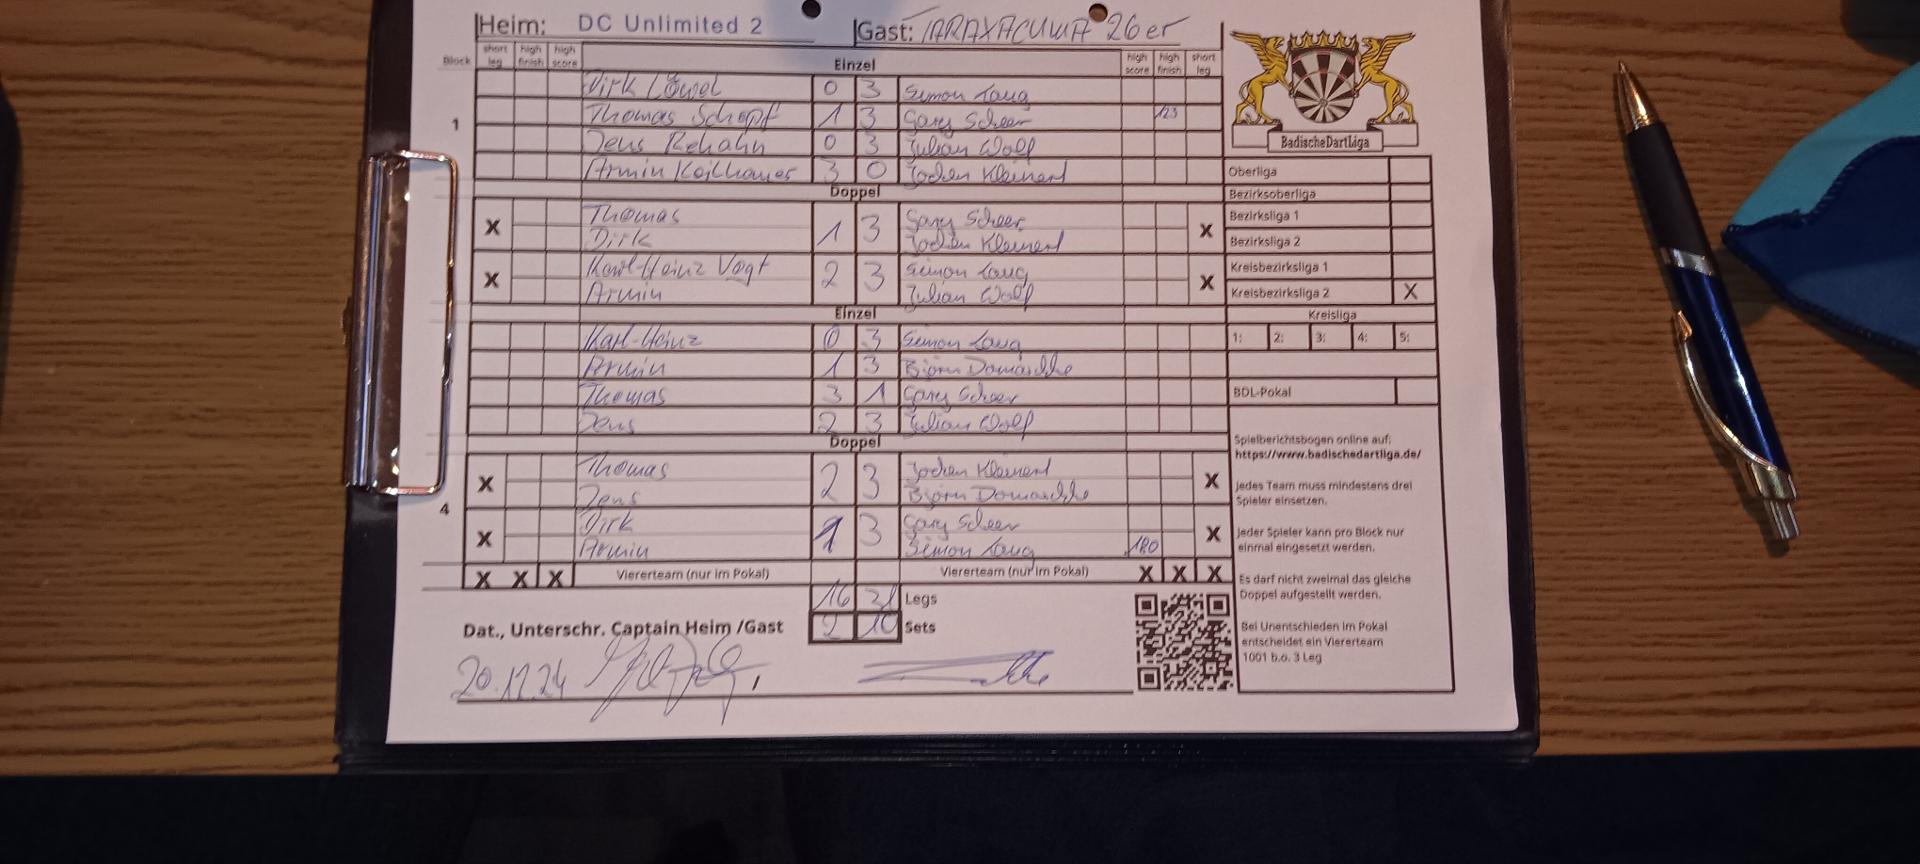 Heim: DC Unlimited 2 Gast: TARAXACUMA 26er
Block short leg high finish high score Einzel high score high finish short leg
Dirk Löwel 0 3 Simon Laug
1 Thomas Schopf 1 3 Gary Scheer 123
Jens Rehahn 0 3 Julian Wolf
Armin Keilhauer 3 0 Jochen Kleinert
Doppel
X Thomas 1 3 Gary Scheer X
Dirk Jochen Kleinert
X Karl-Heinz Vogt 2 3 Simon Laug X
Armin Julian Wolf
Einzel
Karl-Heinz 0 3 Simon Laug
Armin 1 3 Björn Domaschke
Thomas 3 1 Gary Scheer
Jens 2 3 Julian Wolf
Doppel
X Thomas 2 3 Jochen Kleinert X
Jens Björn Domaschke
4
X Dirk 1 3 Gary Scheer X
Armin Simon Laug 180
X X X Viererteam (nur im Pokal) Viererteam (nur im Pokal) X X X
16 31 Legs
2 10 Sets
Dat., Unterschr. Captain Heim /Gast
20.12.24
BadischeDartLiga
Oberliga
Bezirksoberliga
Bezirksliga 1
Bezirksliga 2
Kreisbezirksliga 1
Kreisbezirksliga 2 X
Kreisliga
1: 2: 3: 4: 5:
BDL-Pokal
Spielberichtsbogen online auf:
https://www.badischedartliga.de/
Jedes Team muss mindestens drei
Spieler einsetzen.
Jeder Spieler kann pro Block nur
einmal eingesetzt werden.
Es darf nicht zweimal das gleiche
Doppel aufgestellt werden.
Bei Unentschieden im Pokal
entscheidet ein Viererteam
1001 b.o. 3 Leg